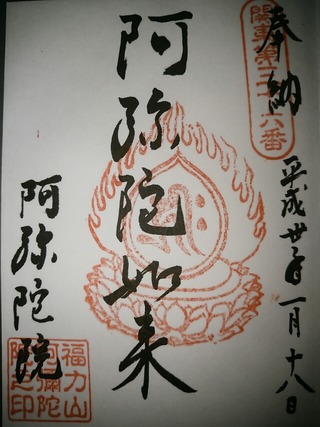 奉納
関東第十六番
平成卅年一月十八日
阿弥陀如来
阿弥陀院
福力山
阿彌陀
院之印